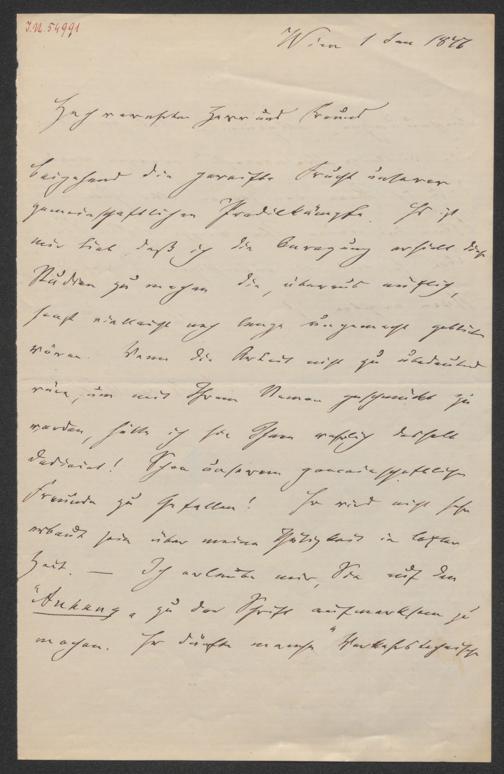 J.N. 54991
Wien 1 Jan 187
Hochverehrter Herr und Freund
beigehend die gereifte Frucht unserer
gemeinschaftlichen Predilkämpfe. Es ist
mir lieb daß ich die Anregung erhielt diese
Studien zu machen die, überaus nützlich,
sonst vielleicht noch lange ungemacht geblieben
wären. Wenn die Arbeit nicht zu unbedeutend
wäre, um mit Ihrem Namen geschmückt zu
werden, hätte ich sie Ihnen deshalb
dedicirt! Schon unserem gemeinschaftlichen
Freunde zu Gefallen! Er wird nicht sehr
erbaut sein über meine Thätigkeit in letzter
Zeit. — Ich erlaube mir, Sie auf den
"Anhang" zu der Schrift aufmerksam zu
machen. Er dürfte manche "Verkehrstechnische